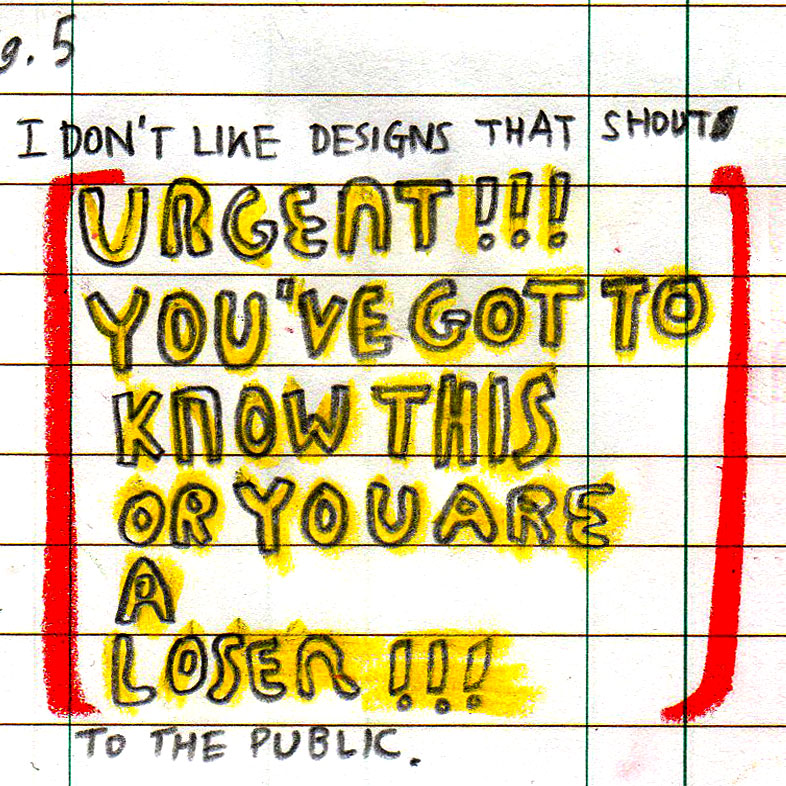 9. 5
I DON'T LIKE DESIGNS THAT SHOUT
URGENT!!!
YOU'VE GOT TO
KNOW THIS
OR YOU ARE
A
LOSER !!!
TO THE PUBLIC.